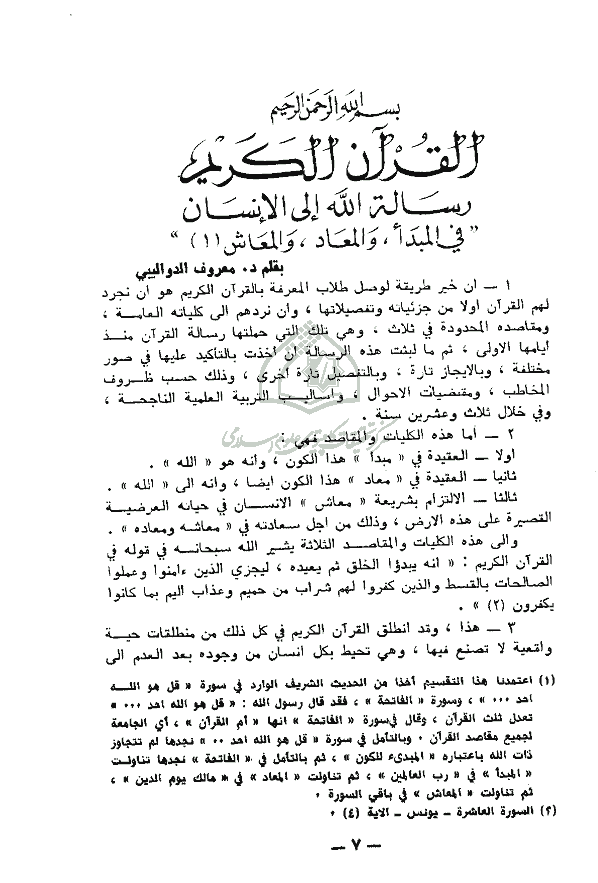 بسم الله الرحمن الرحيم
القرآن الكريم
رسالة الله إلى الإنسان
"في المبدأ، والمعاد، والمعاش (١)"
بقلم د. معروف الدواليبي
١ — ان خير طريقة لوصل طلاب المعرفة بالقرآن الكريم هو ان نجرد
لهم القرآن اولا من جزئياته وتفصيلاتها ، وان نردهم الى كلياته العامة ،
ومقاصده المحدودة في ثلاث ، وهي تلك التي حملتها رسالة القرآن منذ
ايامها الاولى ، ثم ما لبثت هذه الرسالة ان أخذت بالتأكيد عليها في صور
مختلفة ، وبالايجاز تارة ، وبالتفصيل تارة أخرى ، وذلك حسب ظروف
المخاطب ، ومقتضيات الاحوال ، وأساليب التربية العلمية الناجحة ،
وفي خلال ثلاث وعشرين سنة .
٢ — أما هذه الكليات والمقاصد فهي :
اولا — العقيدة في « مبدأ » هذا الكون ، وأنه هو « الله » .
ثانيا — العقيدة في « معاد » هذا الكون ايضا ، وانه الى « الله » .
ثالثا — الالتزام بشريعة « معاش » الانسان في حياته العرضية
القصيرة على هذه الارض ، وذلك من اجل سعادته في « معاشه ومعاده » .
والى هذه الكليات والمقاصد الثلاثة يشير الله سبحانه في قوله في
القرآن الكريم : « انه يبدؤا الخلق ثم يعيده ، ليجزي الذين ءامنوا وعملوا
الصالحات بالقسط والذين كفروا لهم شراب من حميم وعذاب اليم بما كانوا
يكفرون (٢) » .
٣ — هذا ، وقد انطلق القرآن الكريم في كل ذلك من منطلقات حية
واقعية لا تصنع فيها ، وهي تحيط بكل انسان من وجوده بعد العدم الى
(١) اعتمدنا هذا التقسيم أخذا من الحديث الشريف الوارد في سورة « قل هو اللـه
احد ٠٠٠ » ، وسورة « الفاتحة » ، فقد قال رسول الله : « قل هو الله احد ٠٠٠ »
تعدل ثلث القرآن ، وقال في سورة « الفاتحة » انها « أم القرآن » ، أي الجامعة
لجميع مقاصد القرآن ٠ وبالتأمل في سورة « قل هو الله احد ٠٠ » نجدها لم تتجاوز
ذات الله باعتباره « المبدىء للكون » ، ثم بالتأمل في « الفاتحة » نجدها تناولت
« المبدأ » في « رب العالمين » ، ثم تناولت « المعاد » في « مالك يوم الدين » ،
ثم تناولت « المعاش » في باقي السورة ٠
(٢) السورة العاشرة — يونس — الاية (٤) ٠
— ٧ —